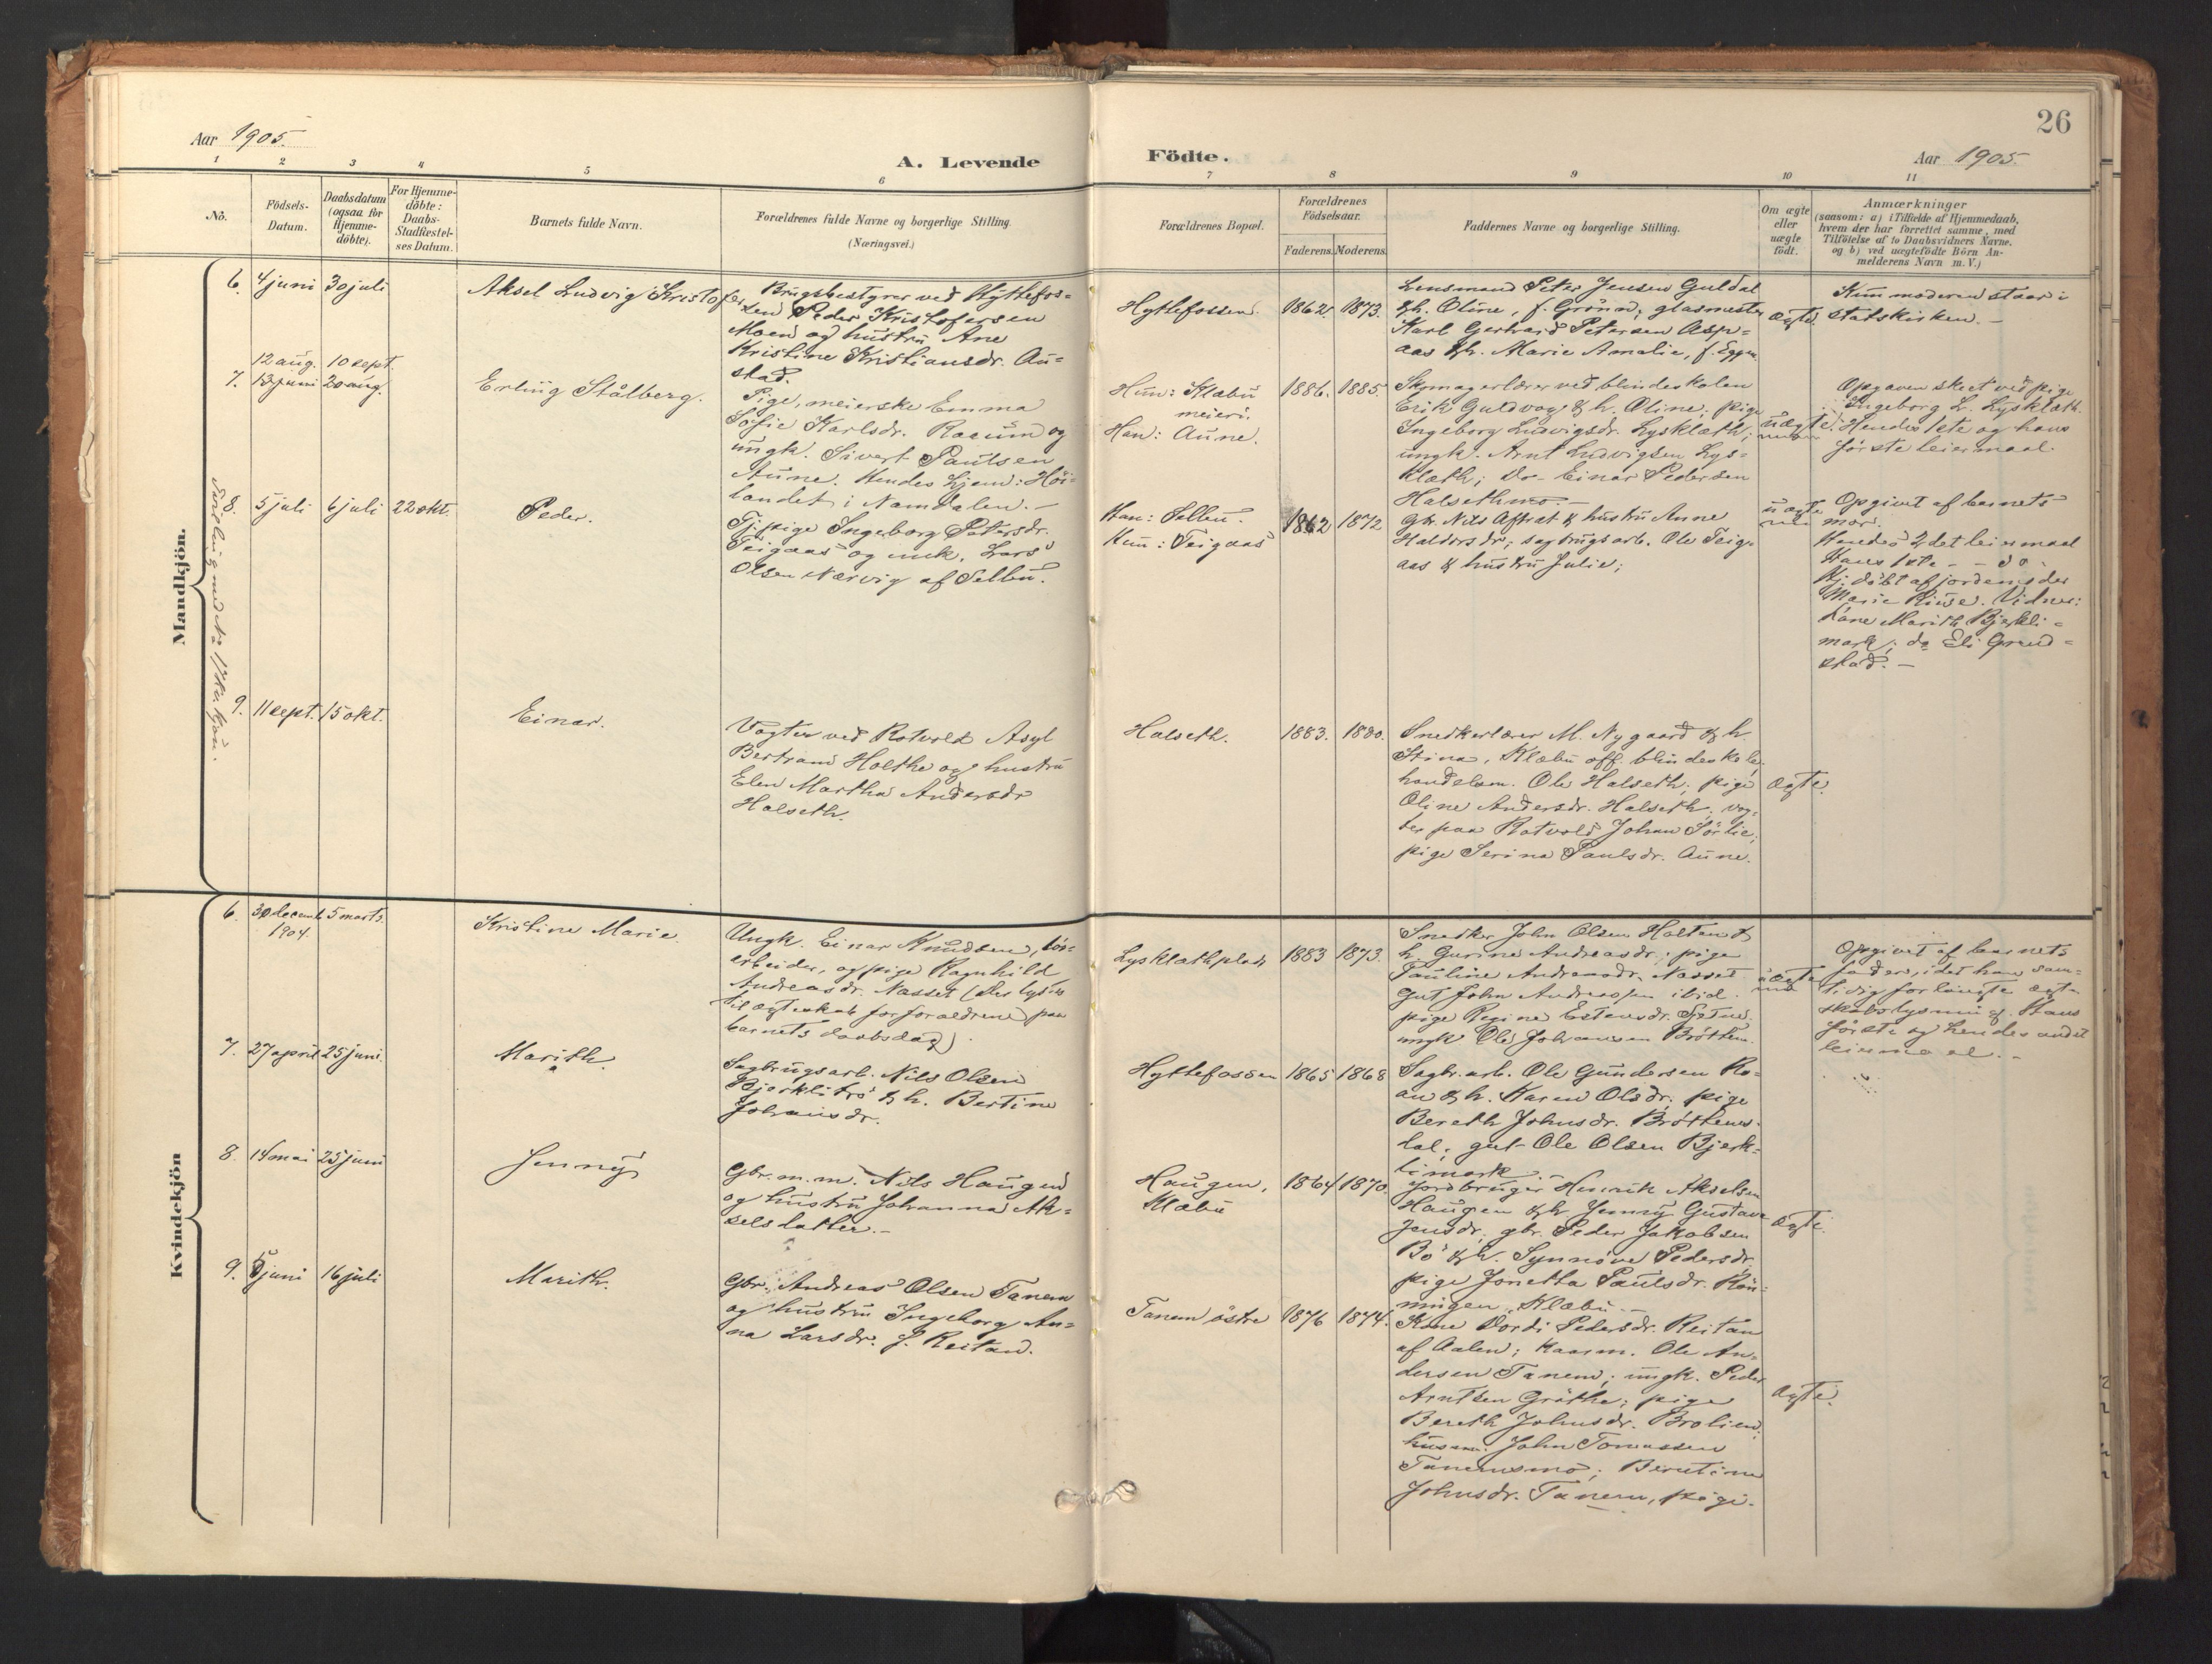 26
Aar 1905.
A. Levende Födte.
Aar 1905.
1 2 3 4 5 6 7 8 9 10 11
No.
Födsels-
Datum.
Daabsdatum
(ogsaa for
Hjemme-
döbte).
For Hjemme-
döbte:
Daabs-
Stadfæstel-
ses Datum.
Barnets fulde Navn.
Forældrenes fulde Navne og borgerlige Stilling.
(Næringsvei.)
Forældrenes Bopæl.
Forældrenes
Födselsaar.
Faderens. Moderens.
Faddernes Navne og borgerlige Stilling.
Om ægte
eller
uægte
födt.
Anmærkninger
(saasom: a) i Tilfælde af Hjemmedaab,
hvem der har forrettet samme, med
Tilföielse af to Daabsvidners Navne.
og b) ved uægtefödte Börn An-
melderens Navn m. V.)
Mandkjön.
6. 4 juni 30 juli
Aksel Ludvig Kristofer
Brugsbestyrer ved Hyttefos-
sen Peder Kristofersen
Moen og hustru Ane
Kristine Kristiansdr. Au-
stad.
Hyttefossen.
1862 1873.
Lensmand Peter Jensen Guldal
& h. Oline, f. Grönn; glasmester
Karl Gerhard Petersen Asp-
aas & h. Marie Amalie, f. Eggen.
ægte.
Kun moderen staar i
statskirken. -
12 aug. 10 sept.
7. 13 juni 20 aug.
Erling Stålberg.
Pige, meierske Emma
Sofie Karlsdr. Raaum og
ungk. Sivert Paulsen
Aune. Hendes hjem: Höi-
landet i Namdalen. -
Hun: Klæbu
meieri.
Han: Aune.
1886. 1885.
Skomagerlærer ved blindeskolen
Erik Guldvog & h. Oline; pige
Ingeborg Ludvigsdr. Lysklæth;
ungk. Arnt Ludvigsen Lys-
klæth; Do - Einar Pedersen
Halsethmo -
uægte.
Opgaven skeet ved pige
Ingeborg L. Lysklæth.
Hendes 1ste og hans
förste leiermaal.
8. 5 juli 6 juli 22 okt.
Peder.
Tj. pige Ingeborg Petersdr.
Teigaas og enk. Lars
Olsen Nærvig af Selbu.
Han: Selbu.
Hun: Teigaas
1862 1872
Gbr. Nils Aftret & hustru Anne
Haldorsdr; sagbrugsarb. Ole Teig-
aas & hustru Julie;
uægte
Opgivet af barnets
mor.
Hendes 2det leiermaal
Hans 1ste - - do -
Hj. döbt af jordemoder
Marie Huse. Vidner:
Kone Marith Bjerkli-
mark; do Eli Grend-
stad. -
9. 11 sept. 15 okt.
Einar.
Vogter ved Rotvold Asyl
Bertram Holthe og hustru
Elen Martha Andersdr
Halseth.
Halseth.
1883. 1880.
Snedkerlærer M. Nygaard & h.
Stina, Klæbu off. blindeskole;
handelsm. Ole Halseth; pige
Oline Andersdr. Halseth; vog-
ter paa Rotvold Johan Sörlie;
pige Serina Paulsdr. Aune.
ægte.
Kvindekjön
6. 30 decemb 5 marts
1904.
Kristine Marie.
Ungk. Einar Knudsen, lös-
arbeider, og pige Ragnhild
Andreasdr. Nasset (Der lyses
til ægteskab for forældrene paa
barnets daabsdag).
Lysklæthplads
1883 1873.
Snedker John Olsen Holten &
h. Gurine Andreasdr; pige
Pauline Andreasdr. Nasset
Gut John Andreassen ibid.
pige Regine Estensdr. Sætne.
ungk Ole Johansen Bröttem.
uægte
Opgivet af barnets
fader, idet han sam-
tidig forlangte ægte-
skabslysning. Hans
förste og hendes andet
leiermaal. -
7. 27 april 25 juni.
Marith.
Sagbrugsarb. Nils Olsen
Bjerklitrö & h. Bertine
Johansdr.
Hyttefossen
1865 1868
Sagbr. arb. Ole Gundersen Ro-
an & h. Karen Olsdr; pige
Bereth Johnsdr. Bröttems-
dal; gut Ole Olsen Bjerk-
limark.
8. 14 mai 25 juni
Jenny
Gbr. m. m. Nils Haugen
og hustru Johanna Ak-
selsdatter. -
Haugen,
Klæbu
1864 1870.
Jordbruger Henrik Akselsen
Haugen & h. Jenny Gustava
Jensdr; gbr. Peder Jakobsen
Bö & h. Synnöve Pedersdr.
pige Jonetta Paulsdr. Rön-
ningen, Klæbu. -
ægte.
9. 5 juni 16 juli
Marith.
Gbr. Andreas Olsen Tanem
og hustru Ingeborg An-
na Larsdr. f. Reitan.
Tanem östre
1876 1874.
Kone Dordi Pedersdr. Reitan
af Aalen; kaarm. Ole An-
dersen Tanem; ungk. Peder
Arntsen Gröthe; pige
Bereth Johnsdr. Brolien;
husm. John Tomassen
Tanemsmo; Berntine
Johnsdr. Tanem, pige.
ægte.